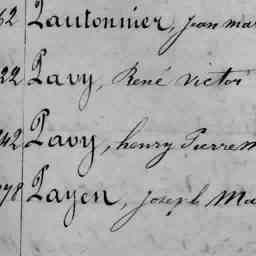 62 Pautonnier, Jean mar
22 Pavy, René Victor
242 Pavy, henry Pierre M
78 Payen, Joseph Ma